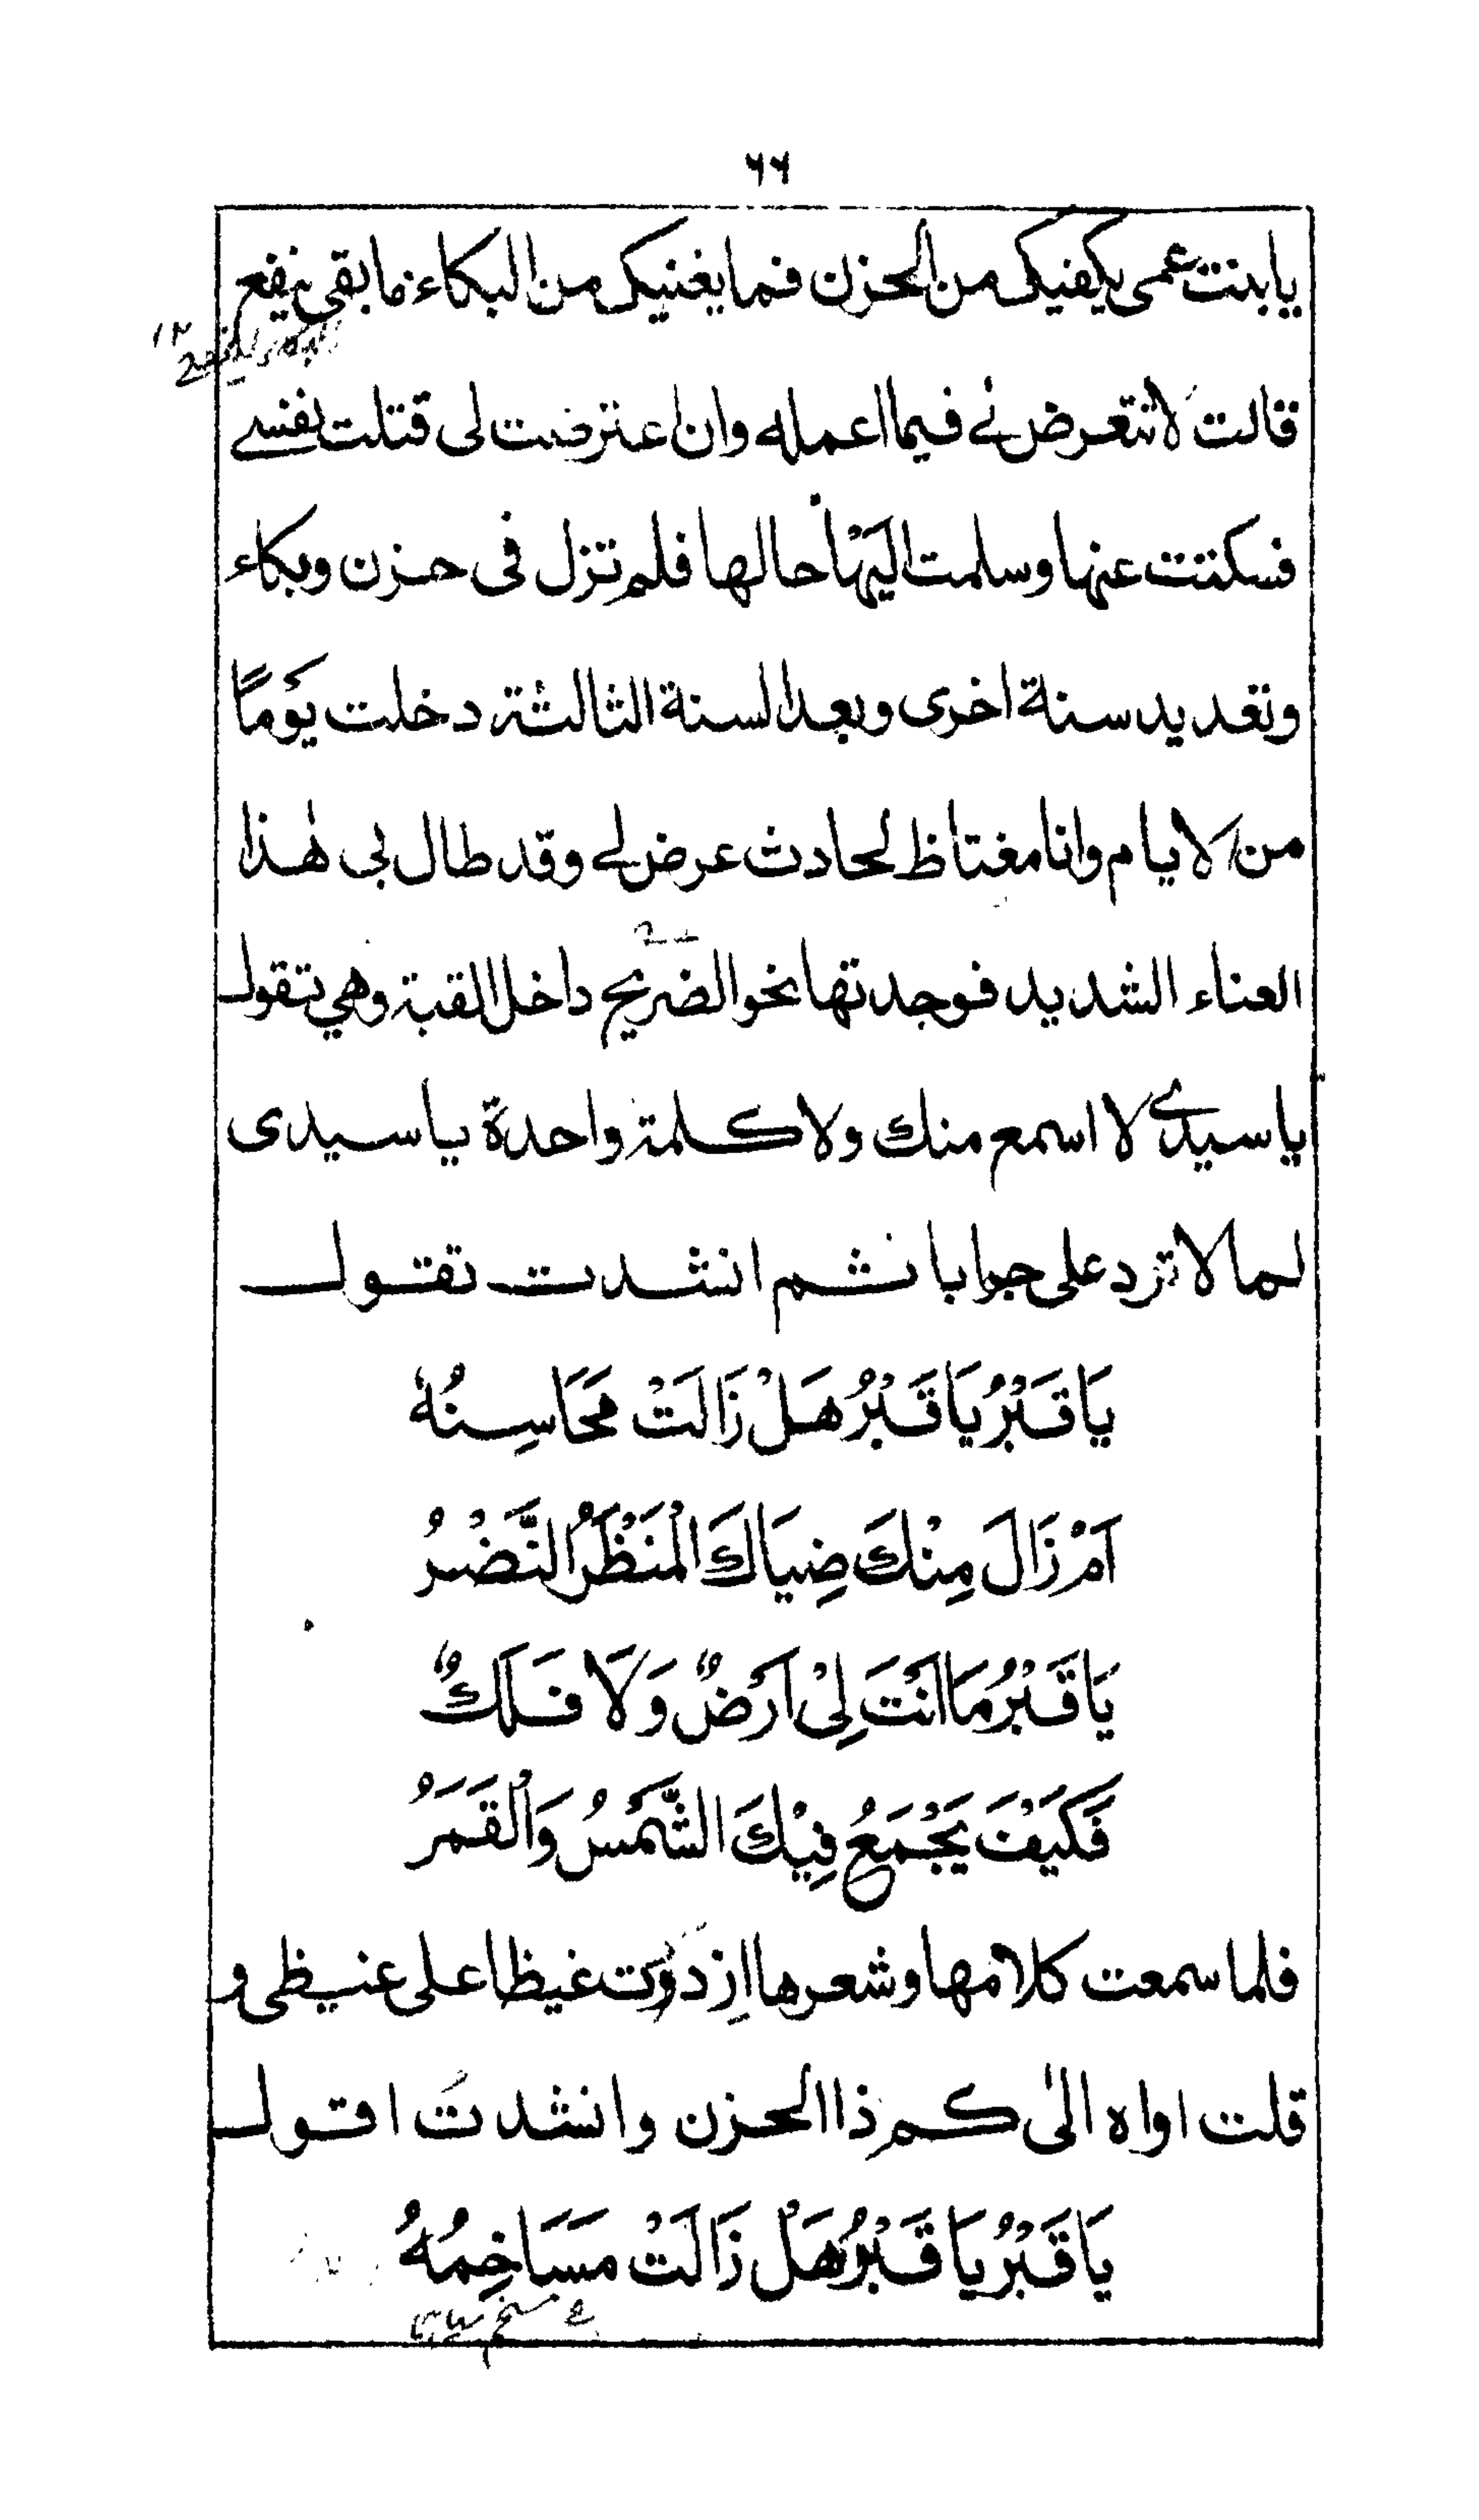 ٦٦
يا بنت عمى يكفيك من الحزن فما يغنيك من البكاء ما بقى ينفع
قالت لا تتعرض لى فيما اعمله وان اعترضت لى قتلت نفسے
فسكتت عنها وسلمت اليها حالها فلم تزل فى حزن وبكاء
وتعديد سنة اخرى وبعد السنة الثالثة دخلت يَومًا
من الايام وانا مغتاظ لحادث عرض لے وقد طال بى هٰذا
العناء الشديد فوجدتها نحو الضريح داخل القبة وهي تقول
يا سيدے لا اسمع منك ولا كلمة واحدة يا سيدى
لما لا ترد على جوابا ثم انشدت تقول
يَا قَبْرُ يَا قَبْرُ هَلْ زَالَتْ مَحَاسِنُهُ
اَمْ زَالَ مِنْكَ ضِيَاكَ الْمَنْظَرُ النَّضْرُ
يَا قَبْرُ مَا اَنْتَ لِىْ اَرْضٌ وَلَا فَلَكٌ
فَكَيْفَ يَجْمَعُ فِيْكَ الشَّمْسُ وَالْقَمَرُ
فلما سمعت كلامها وشعرها اِزددت غيظا على غيظى و
قلت اواه الىٰ كم ذا الحزن وانشدتُ اقول
يَا قَبْرُ يَا قَبْرُ هَلْ زَالَتْ مَسَاخِمُهُ